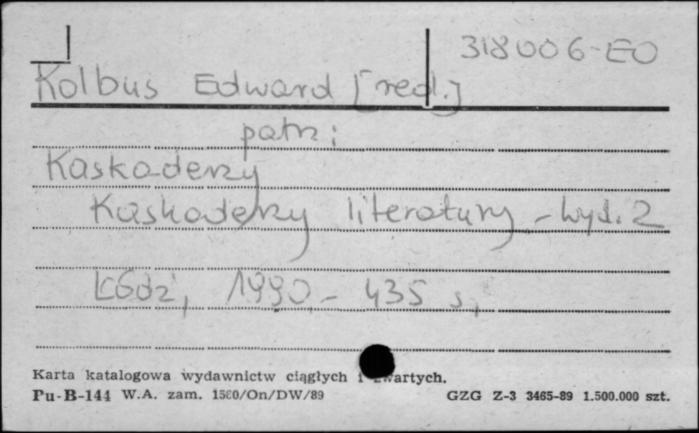 318006-EO
Kolbus Edward [red.]
patrz:
Kaskaderzy
Kaskaderzy literatury - Wyd. 2
Łódź, 1990 - 435 s,
Karta katalogowa wydawnictw ciągłych i zwartych.
Pu-B-144 W.A. zam. 1580/On/DW/89 GZG Z-3 3465-89 1.500.000 szt.